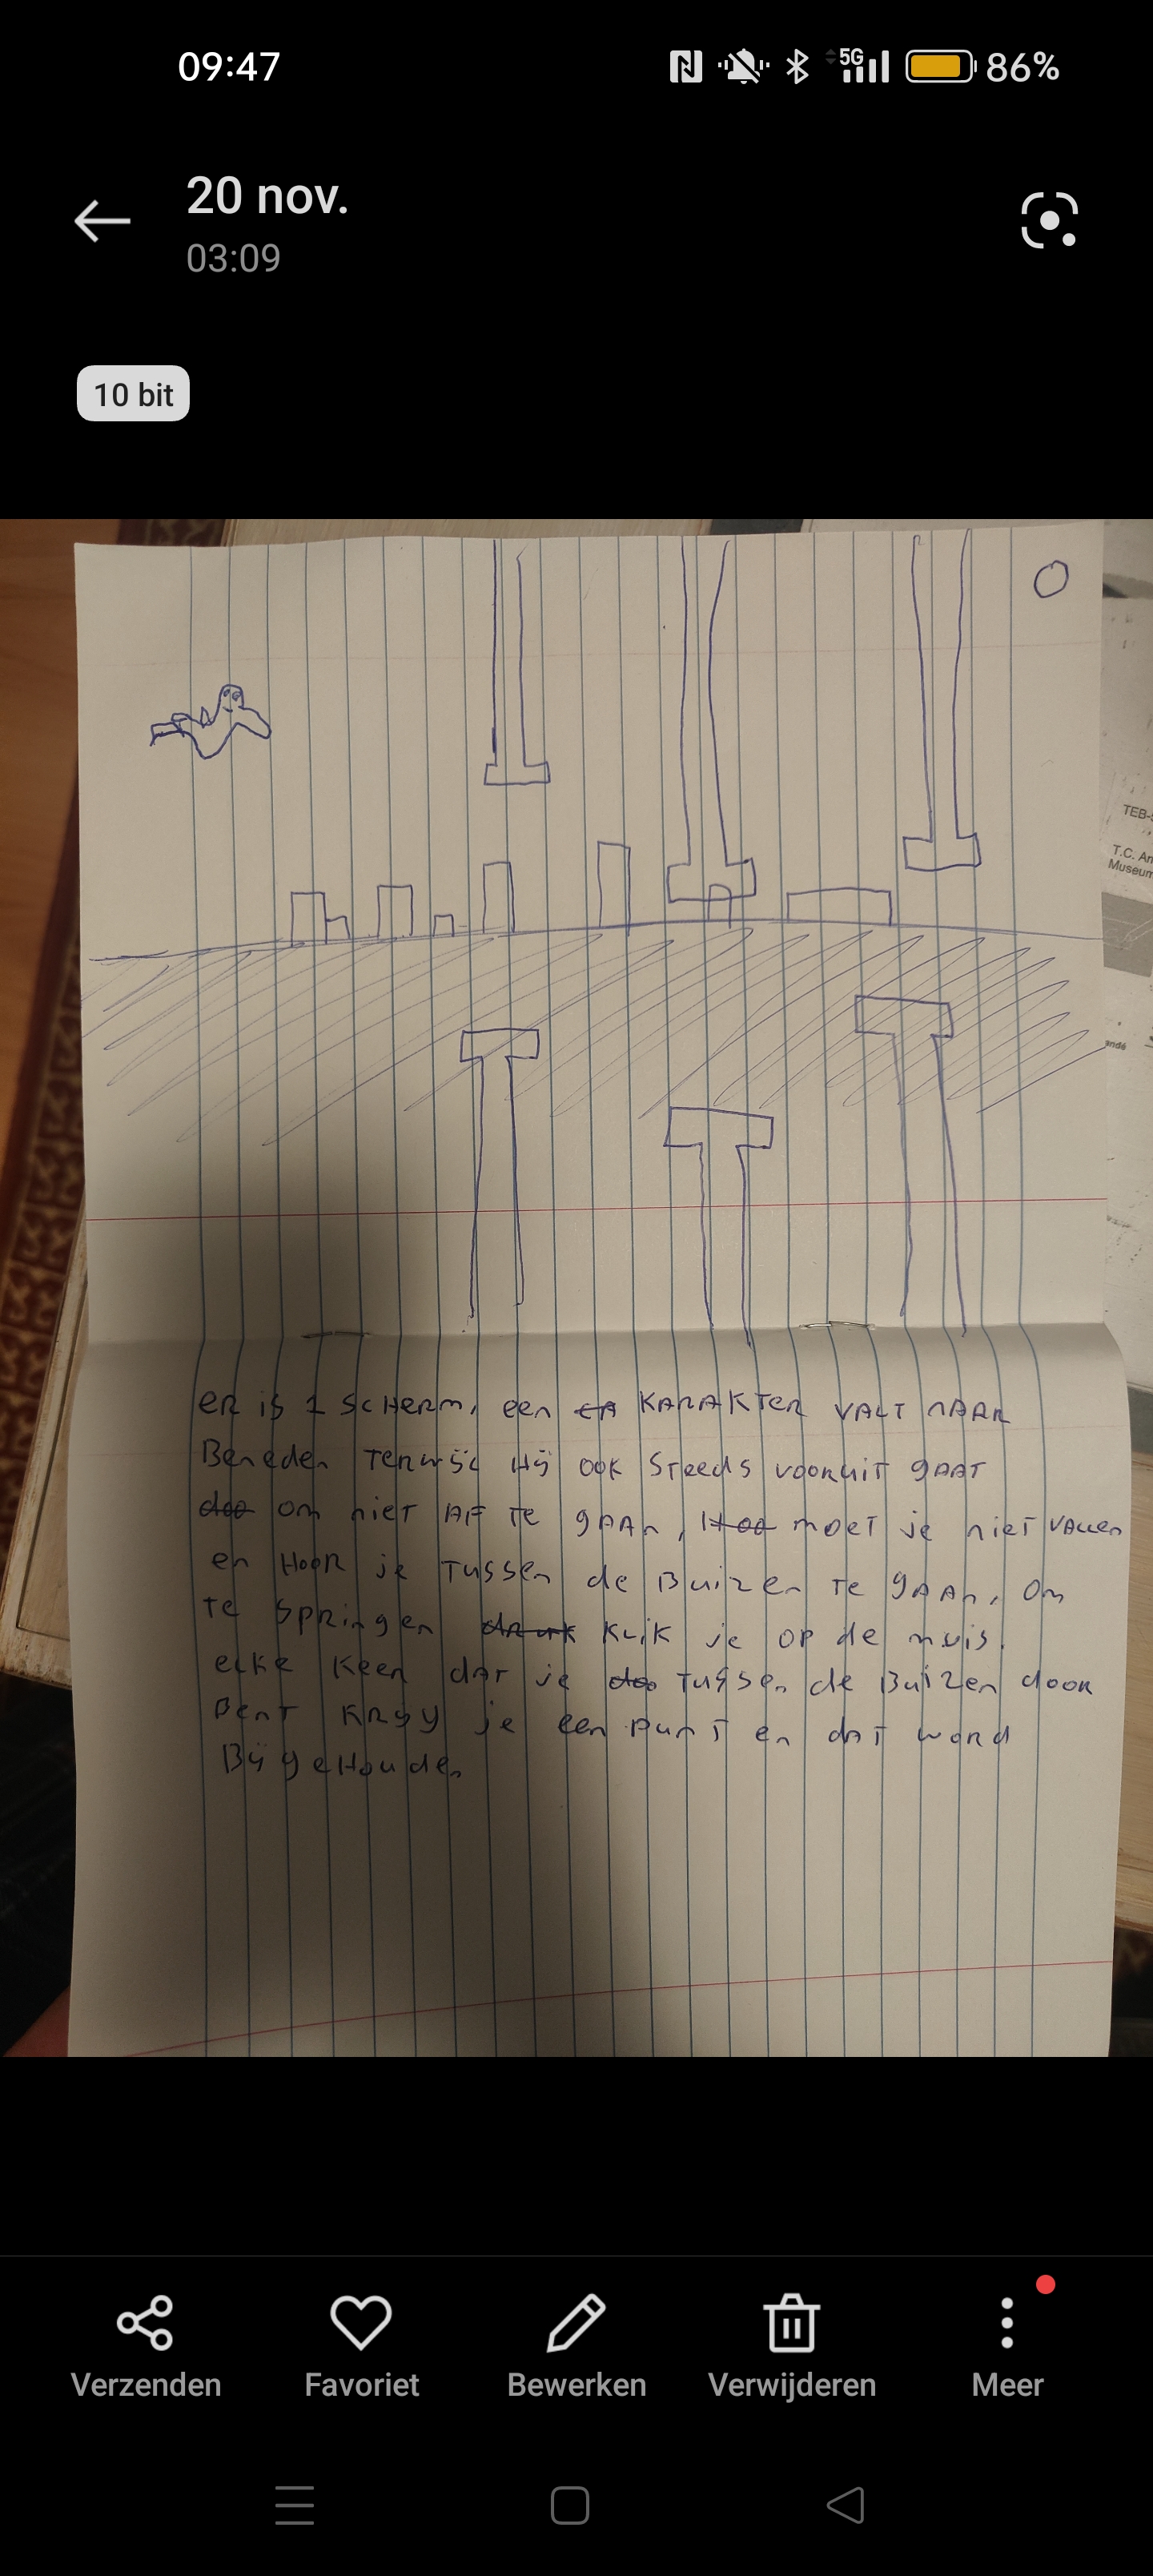 09:47
5G
86%
20 nov.
03:09
10 bit
O
TEB-
T.C. An
Museum
andé
er is 1 scherm, een karakter valt naar
beneden terwijl hij ook steeds vooruit gaat
doo om niet af te gaan, moet je niet vallen
en hoor je tussen de buizen te gaan, om
te springen druk klik je op de muis.
elke keer dat je doo tussen de buizen door
bent kryy je een punt en dat word
bijgehouden
Verzenden
Favoriet
Bewerken
Verwijderen
Meer